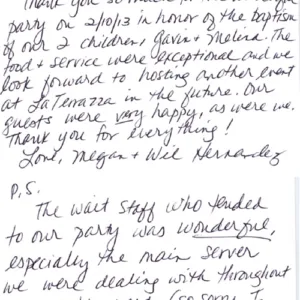 party on 2/10/13 in honor of the baptism
of our 2 children, Gavin + Melina. The
food + service were exceptional and we
look forward to hosting another event
at LaTerrazza in the future. Our
guests were very happy, as were we.
Thank you for everything!
Love, Megan + Wil Hernandez
P.S.
The wait staff who tended
to our party was wonderful,
especially the main server
we were dealing with throughout
(so sorry I